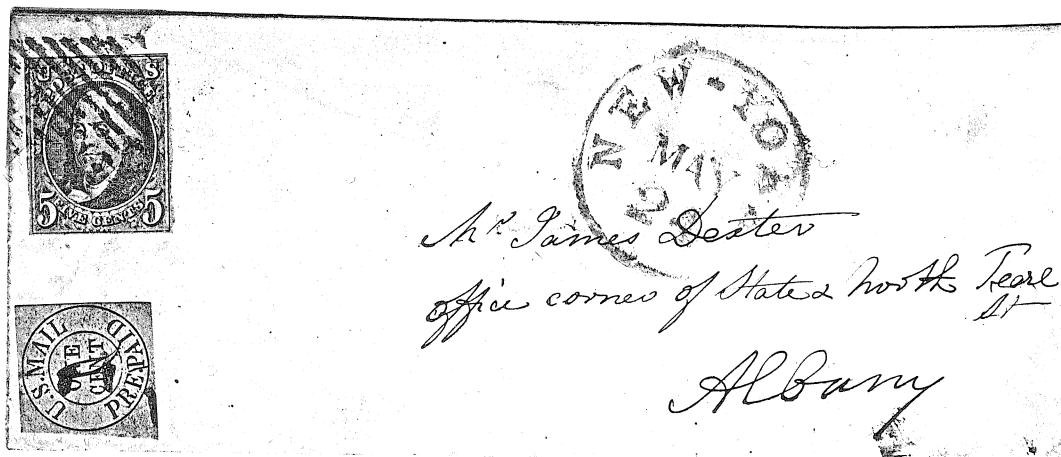 POST OFFICE
5 FIVE CENTS 5
U.S. MAIL
PREPAID
ONE
CENT
NEW-YORK
MAY
Mr James Dexter
office corner of State & North Pearl
St
Albany